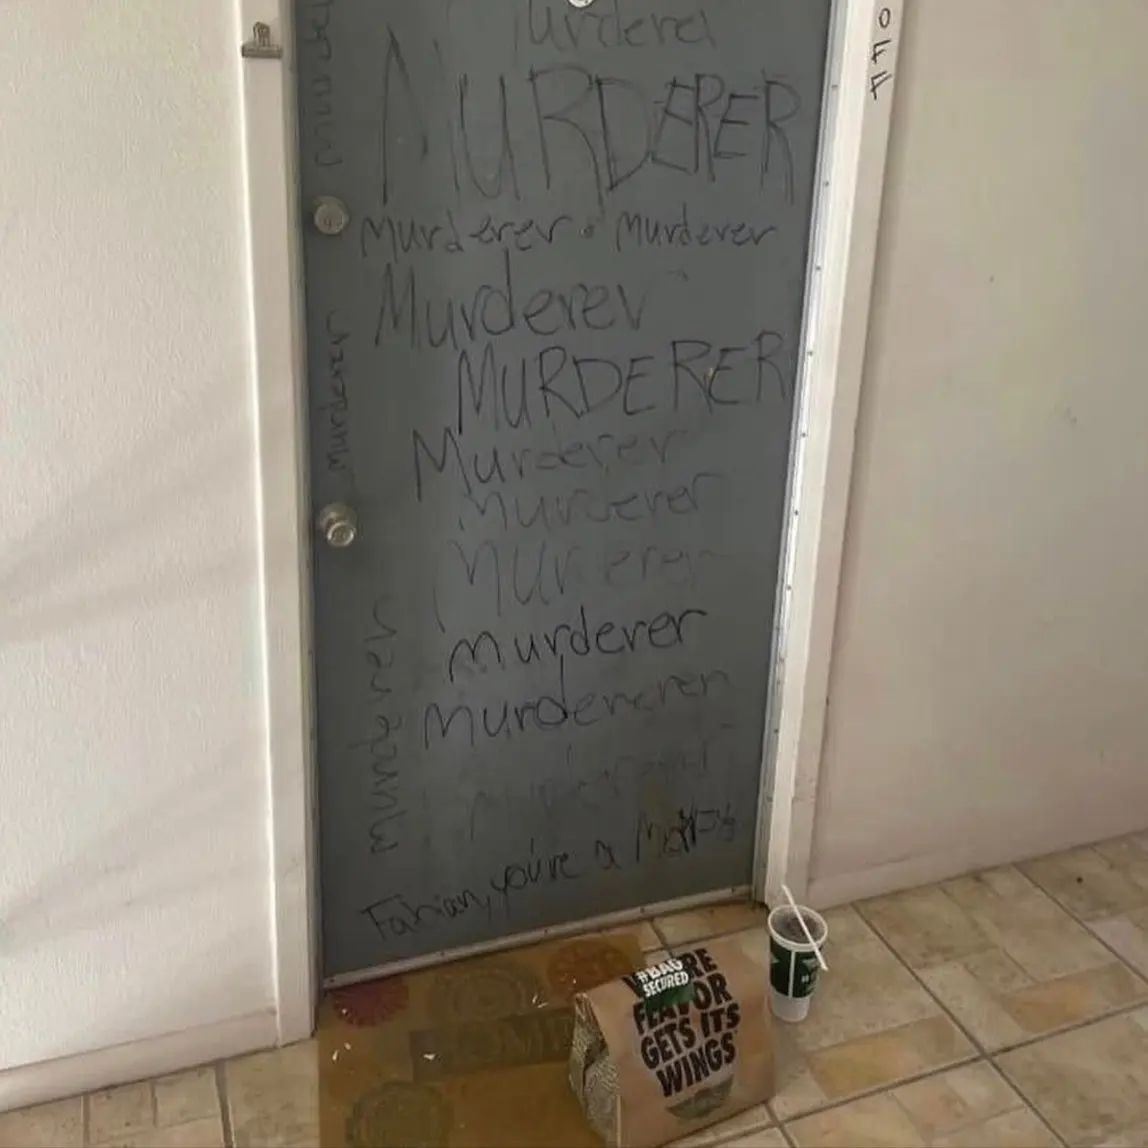 Murderer
MURDERER
Murderer • Murderer
Murderer
MURDERER
Murderer
Murderer
Murderer
murderer
Murdererer
Fabian, you're a
murderer
murderer
murderer
044
#BAG
SECURED
WHERE
FLAVOR
GETS ITS
WINGS